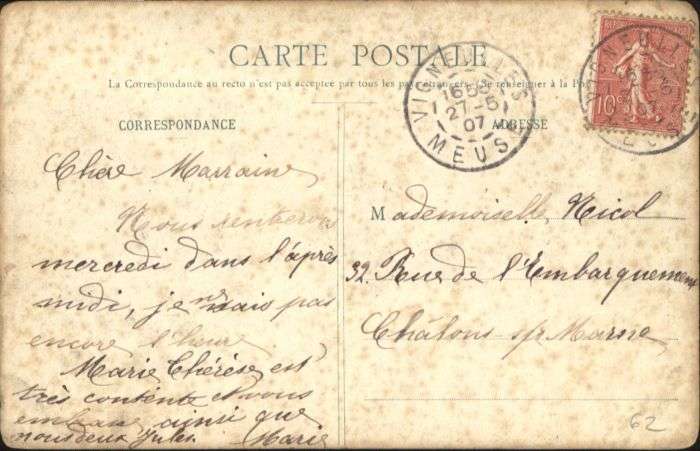 CARTE POSTALE
La Correspondance au recto n'est pas acceptée par tous les pays étrangers. (Se renseigner à la Poste
CORRESPONDANCE
Chère Marraine
Nous rentrerons
mercredi dans l'après
midi, je ne sais pas
encore l'heure
Marie Thérèse est
très contente et vous
ainsi que
nous deux Jules. Marie
VIGNEULLES
16
27-5
07
MEUSE
ADRESSE
10c
Mademoiselle Nicol
32 Rue de l'Embarquement
Châlons s/r Marne
62